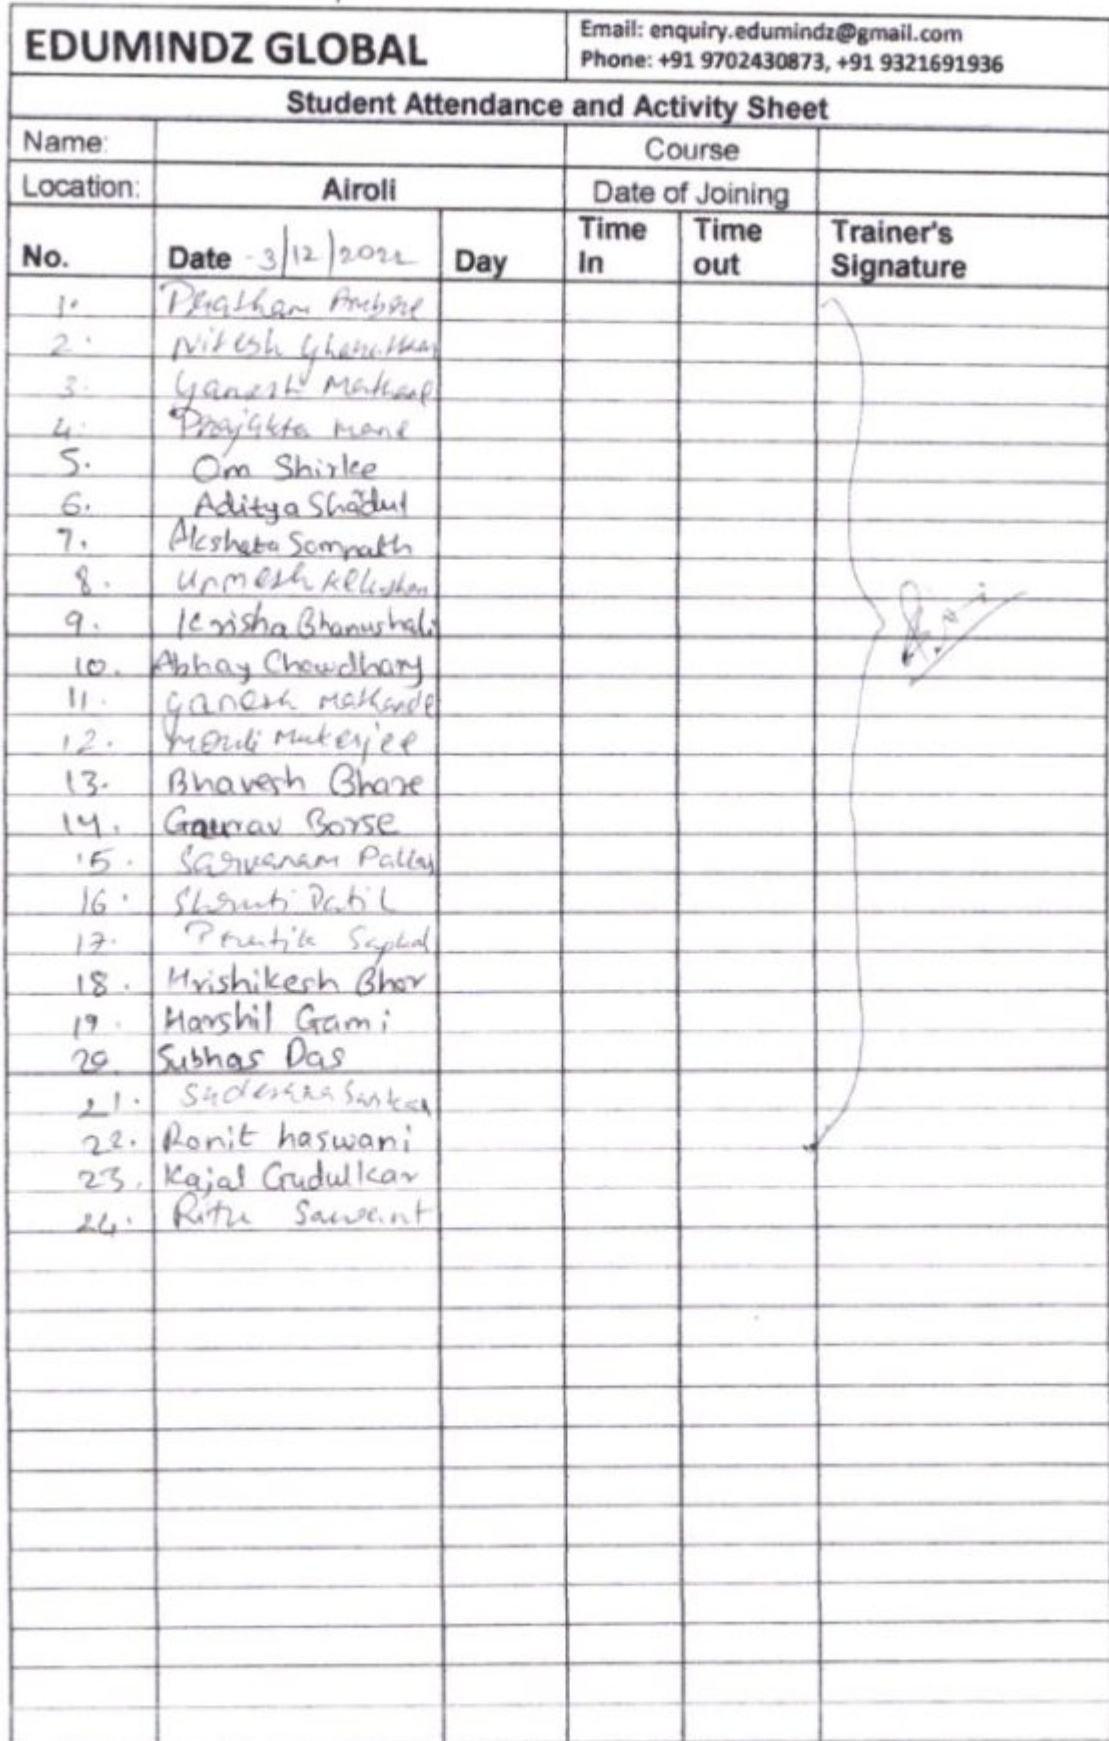 EDUMINDZ GLOBAL
Email: enquiry.edumindz@gmail.com
Phone: +91 9702430873, +91 9321691936
Student Attendance and Activity Sheet
Name: Course
Location: Airoli Date of Joining
No. Date 3/12/2022 Day Time In Time out Trainer's Signature
1. Pratham
2. Nitesh
3. Ganesh
4. Prajakta Mane
5. Om Shirke
6. Aditya
7. Aksheta Somnath
8. Unmesh
9. Krisha Bhanushali
10. Abhay Chowdhary
11. Ganesh
12. Mukerjee
13. Bhavesh Bhare
14. Gaurav Borse
15. Sarvanam
16. Shruti Patil
17.
18. Hrishikesh Bhor
19. Harshil Gami
20 Subhas Das
21.
22. Ronit haswani
23. Kajal Gudulkar
24. Ritu Sawant